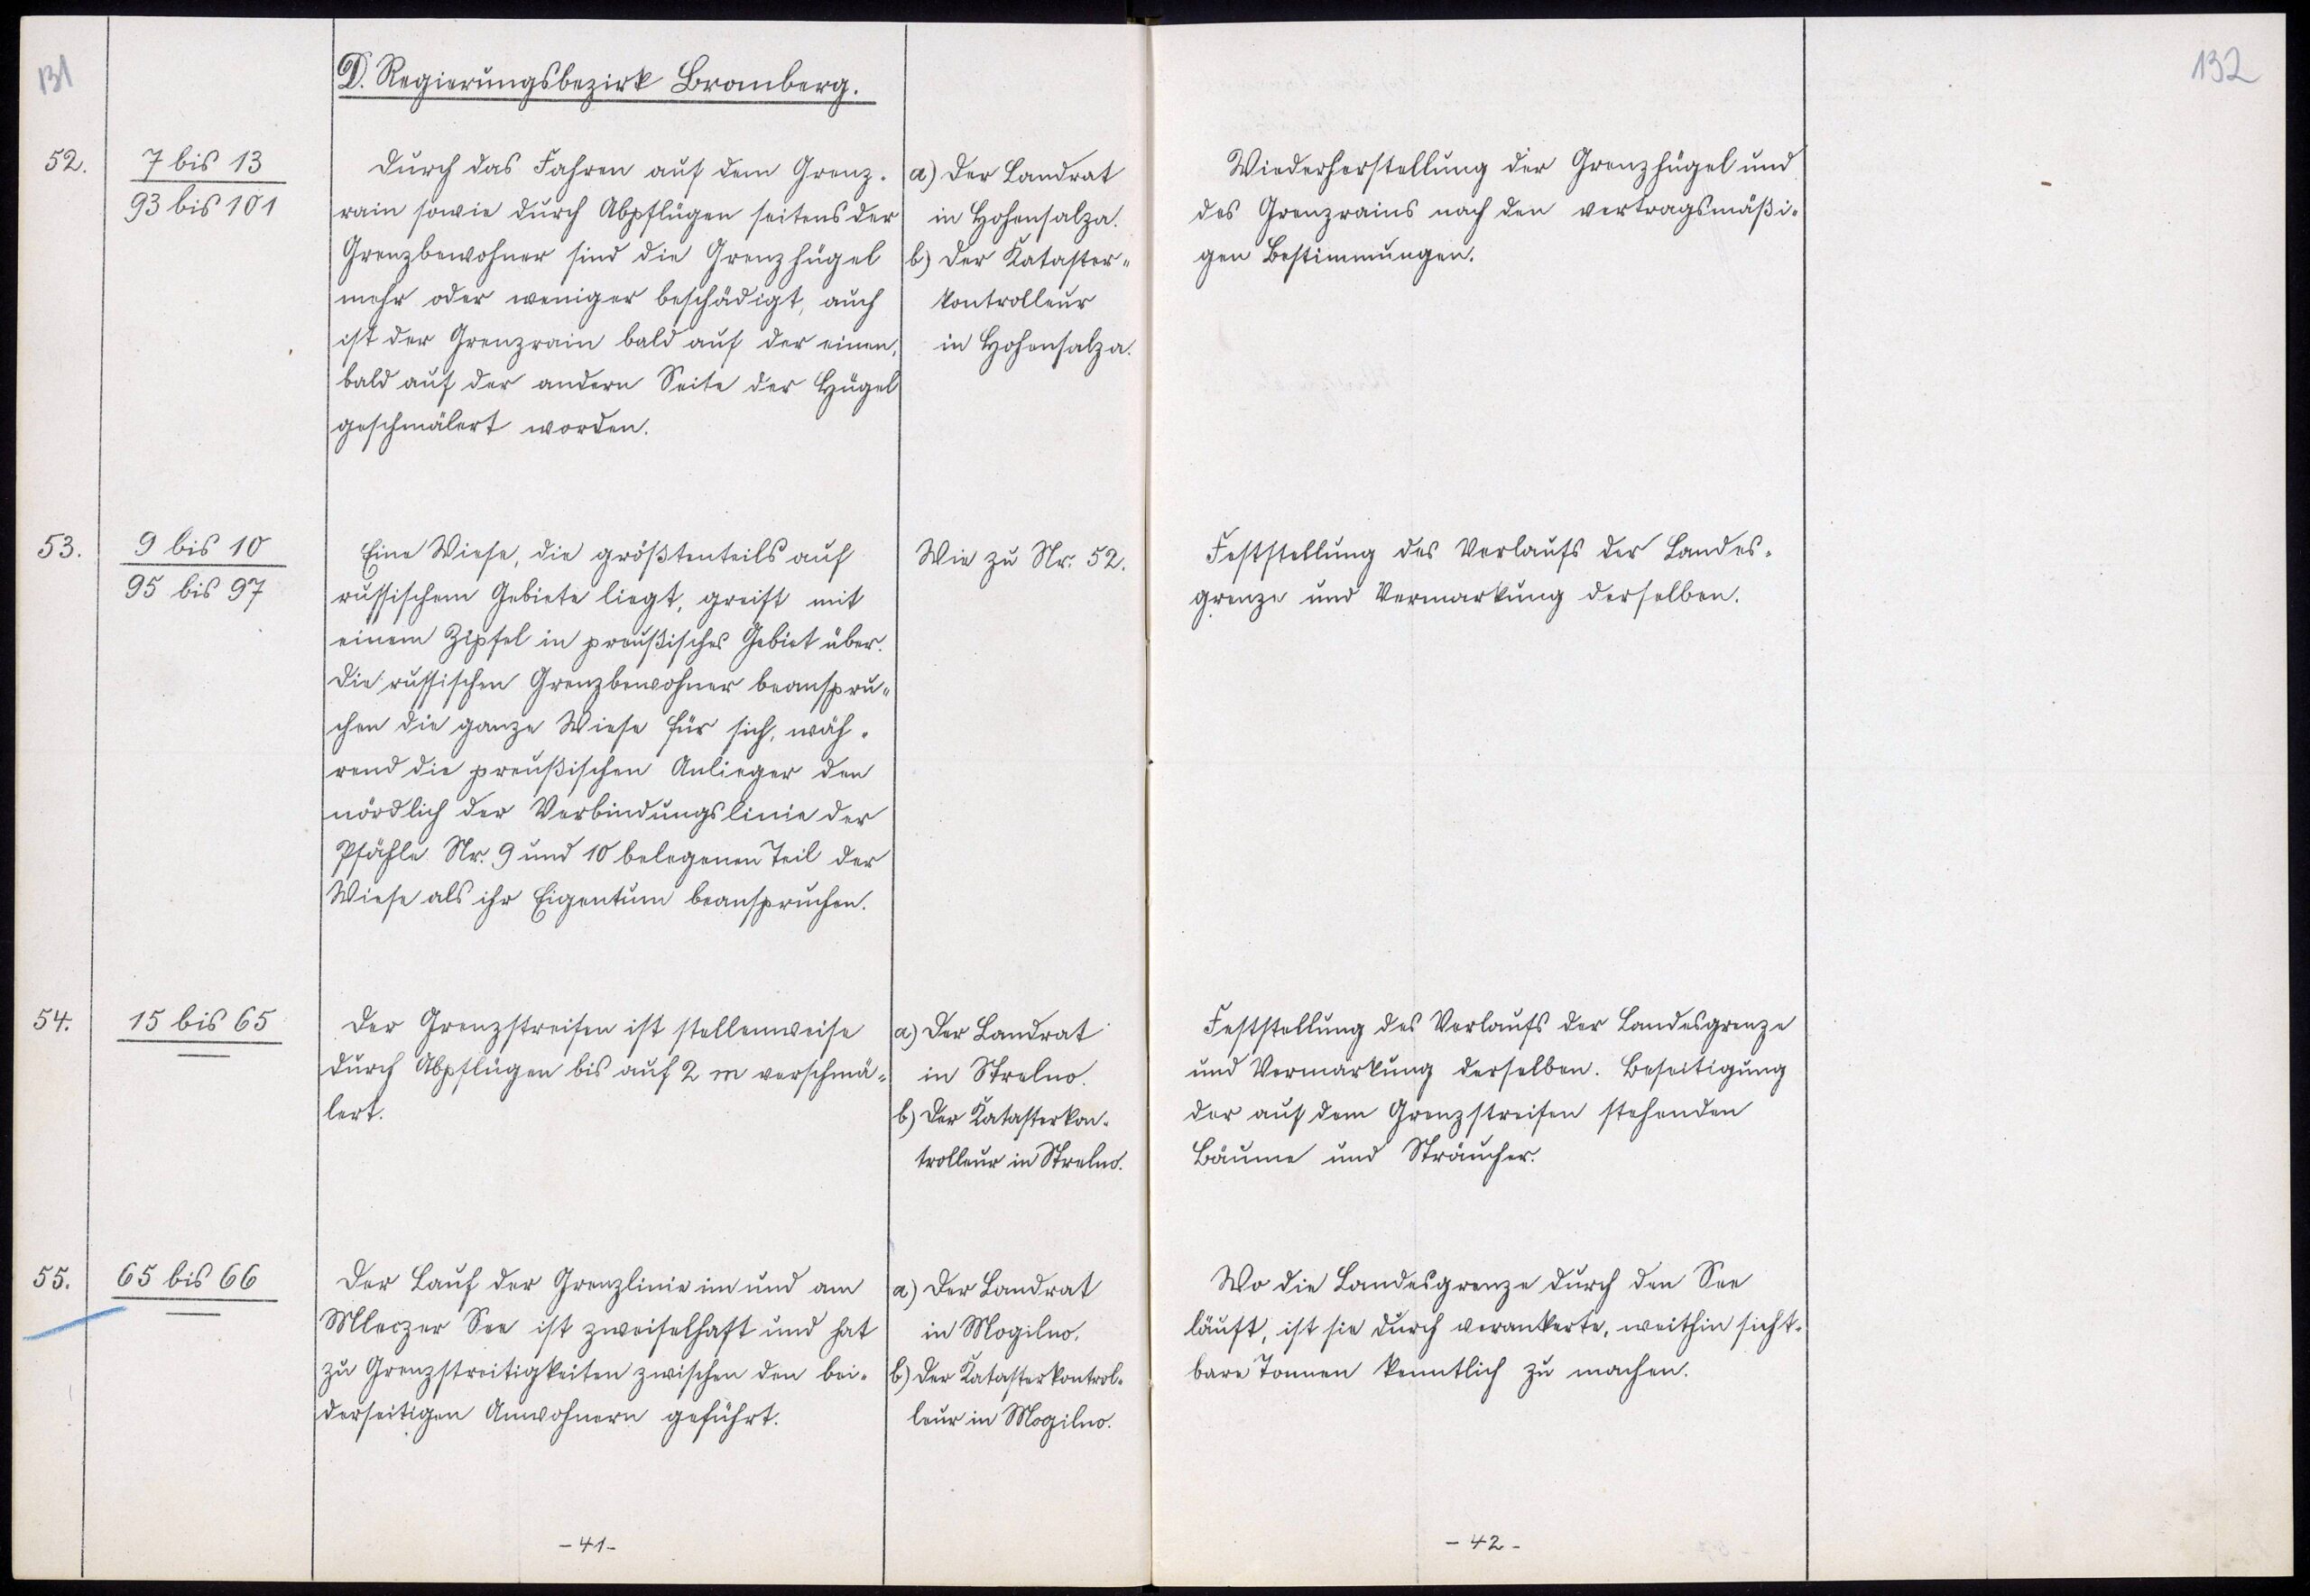 131
D. Regierungsbezirk Bromberg.
52.
7 bis 13
93 bis 101
Durch das Fahren auf dem Grenz-
rain sowie durch Abpflügen seitens der
Grenzbewohner sind die Grenzhügel
mehr oder weniger beschädigt, auch
ist der Grenzrain bald auf der einen,
bald auf der andern Seite der Hügel
geschmälert worden.
a) Der Landrat
in Hohensalza.
b) Der Kataster-
kontrolleur
in Hohensalza.
53.
9 bis 10
95 bis 97
Eine Wiese, die größtenteils auf
russischem Gebiete liegt, greift mit
einem Zipfel in preußisches Gebiet über.
Die russischen Grenzbewohner beanspru-
chen die ganze Wiese für sich, wäh-
rend die preußischen Anlieger den
nördlich der Verbindungslinie der
Pfähle Nr. 9 und 10 belegenen Teil der
Wiese als ihr Eigentum beanspruchen.
Wie zu Nr. 52.
54.
15 bis 65
Der Grenzstreifen ist stellenweise
durch Abpflügen bis auf 2 m verschmä-
lert.
a) Der Landrat
in Strelno.
b) Der Katasterkon-
trolleur in Strelno.
55.
65 bis 66
Der Lauf der Grenzlinie im und am
Mleczer See ist zweifelhaft und hat
zu Grenzstreitigkeiten zwischen den bei-
derseitigen Anwohnern geführt.
a) Der Landrat
in Mogilno.
b) Der Katasterkontrol-
leur in Mogilno.
-41-
132
Wiederherstellung der Grenzhügel und
des Grenzrains nach den vertragsmäßi-
gen Bestimmungen.
Feststellung des Verlaufs der Landes-
grenze und Vermarkung derselben.
Feststellung des Verlaufs der Landesgrenze
und Vermarkung derselben. Beseitigung
der auf dem Grenzstreifen stehenden
Bäume und Sträucher.
Wo die Landesgrenze durch den See
läuft, ist sie durch verankerte, weithin sicht-
bare Tonnen kenntlich zu machen.
-42-